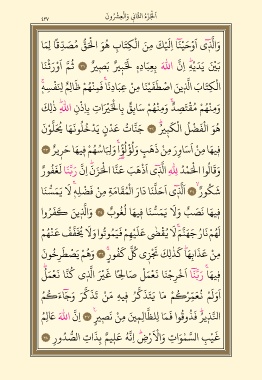 الجزء الثاني والعشرون ٤٣٧
وَالَّذ۪ٓي اَوْحَيْنَٓا اِلَيْكَ مِنَ الْكِتَابِ هُوَ الْحَقُّ مُصَدِّقًا لِمَا
بَيْنَ يَدَيْهِ اِنَّ اللّٰهَ بِعِبَادِه۪ لَخَب۪يرٌ بَص۪يرٌ ثُمَّ اَوْرَثْنَا
الْكِتَابَ الَّذ۪ينَ اصْطَفَيْنَا مِنْ عِبَادِنَا فَمِنْهُمْ ظَالِمٌ لِنَفْسِه۪
وَمِنْهُمْ مُقْتَصِدٌ وَمِنْهُمْ سَابِقٌ بِالْخَيْرَاتِ بِاِذْنِ اللّٰهِ ذٰلِكَ
هُوَ الْفَضْلُ الْكَب۪يرُ جَنَّاتُ عَدْنٍ يَدْخُلُونَهَا يُحَلَّوْنَ
ف۪يهَا مِنْ اَسَاوِرَ مِنْ ذَهَبٍ وَلُؤْلُؤًا وَلِبَاسُهُمْ ف۪يهَا حَر۪يرٌ
وَقَالُوا الْحَمْدُ لِلّٰهِ الَّذ۪ٓي اَذْهَبَ عَنَّا الْحَزَنَ اِنَّ رَبَّنَا لَغَفُورٌ
شَكُورٌ اَلَّذ۪ٓي اَحَلَّنَا دَارَ الْمُقَامَةِ مِنْ فَضْلِه۪ لَا يَمَسُّنَا
ف۪يهَا نَصَبٌ وَلَا يَمَسُّنَا ف۪يهَا لُغُوبٌ وَالَّذ۪ينَ كَفَرُوا
لَهُمْ نَارُ جَهَنَّمَ لَا يُقْضٰى عَلَيْهِمْ فَيَمُوتُوا وَلَا يُخَفَّفُ عَنْهُمْ
مِنْ عَذَابِهَا كَذٰلِكَ نَجْز۪ي كُلَّ كَفُورٍ وَهُمْ يَصْطَرِخُونَ
ف۪يهَا رَبَّنَٓا اَخْرِجْنَا نَعْمَلْ صَالِحًا غَيْرَ الَّذ۪ي كُنَّا نَعْمَلُ
اَوَلَمْ نُعَمِّرْكُمْ مَا يَتَذَكَّرُ ف۪يهِ مَنْ تَذَكَّرَ وَجَٓاءَكُمُ
النَّذ۪يرُ فَذُوقُوا فَمَا لِلظَّالِم۪ينَ مِنْ نَص۪يرٍ اِنَّ اللّٰهَ عَالِمُ
غَيْبِ السَّمٰوَاتِ وَالْاَرْضِ اِنَّهُ عَل۪يمٌ بِذَاتِ الصُّدُورِ